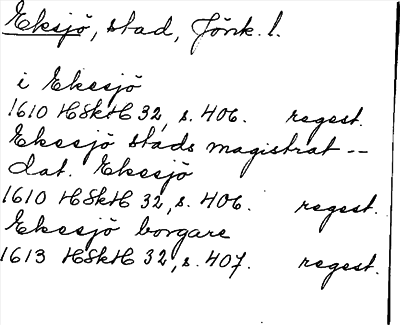 Eksjö, stad, Jönk. l.
i Ekesjö
1610 HSkH 32, s. 406. regest.
Ekesjö stads magistrat --
dat. Ekesjö
1610 HSkH 32, s. 406. regest.
Ekesjö borgare
1613 HSkH 32, s. 407. regest.